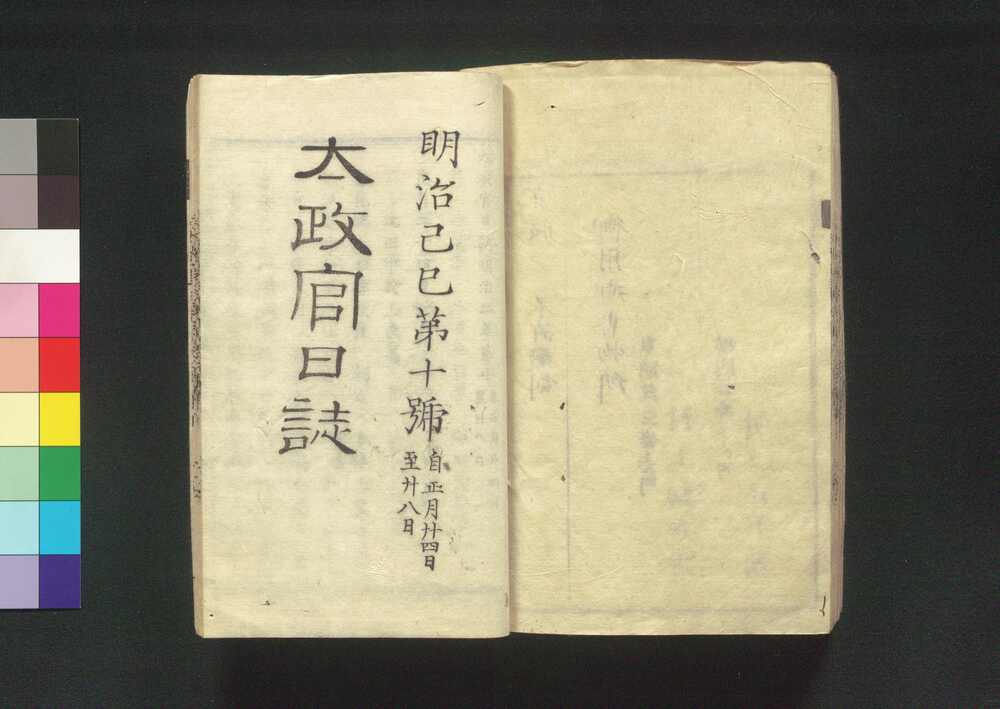 明治己巳第十號
自正月廿四日
至廿八日
太政官日誌